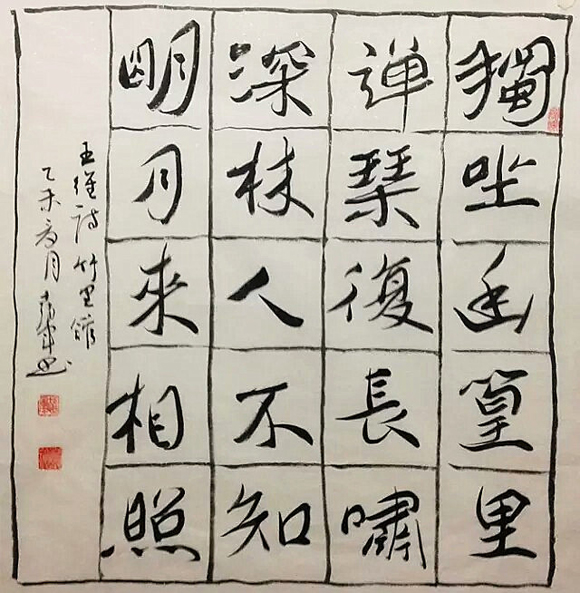 獨坐幽篁里
弹琴復長嘯
深林人不知
明月來相照
王维诗竹里馆
乙未夏月